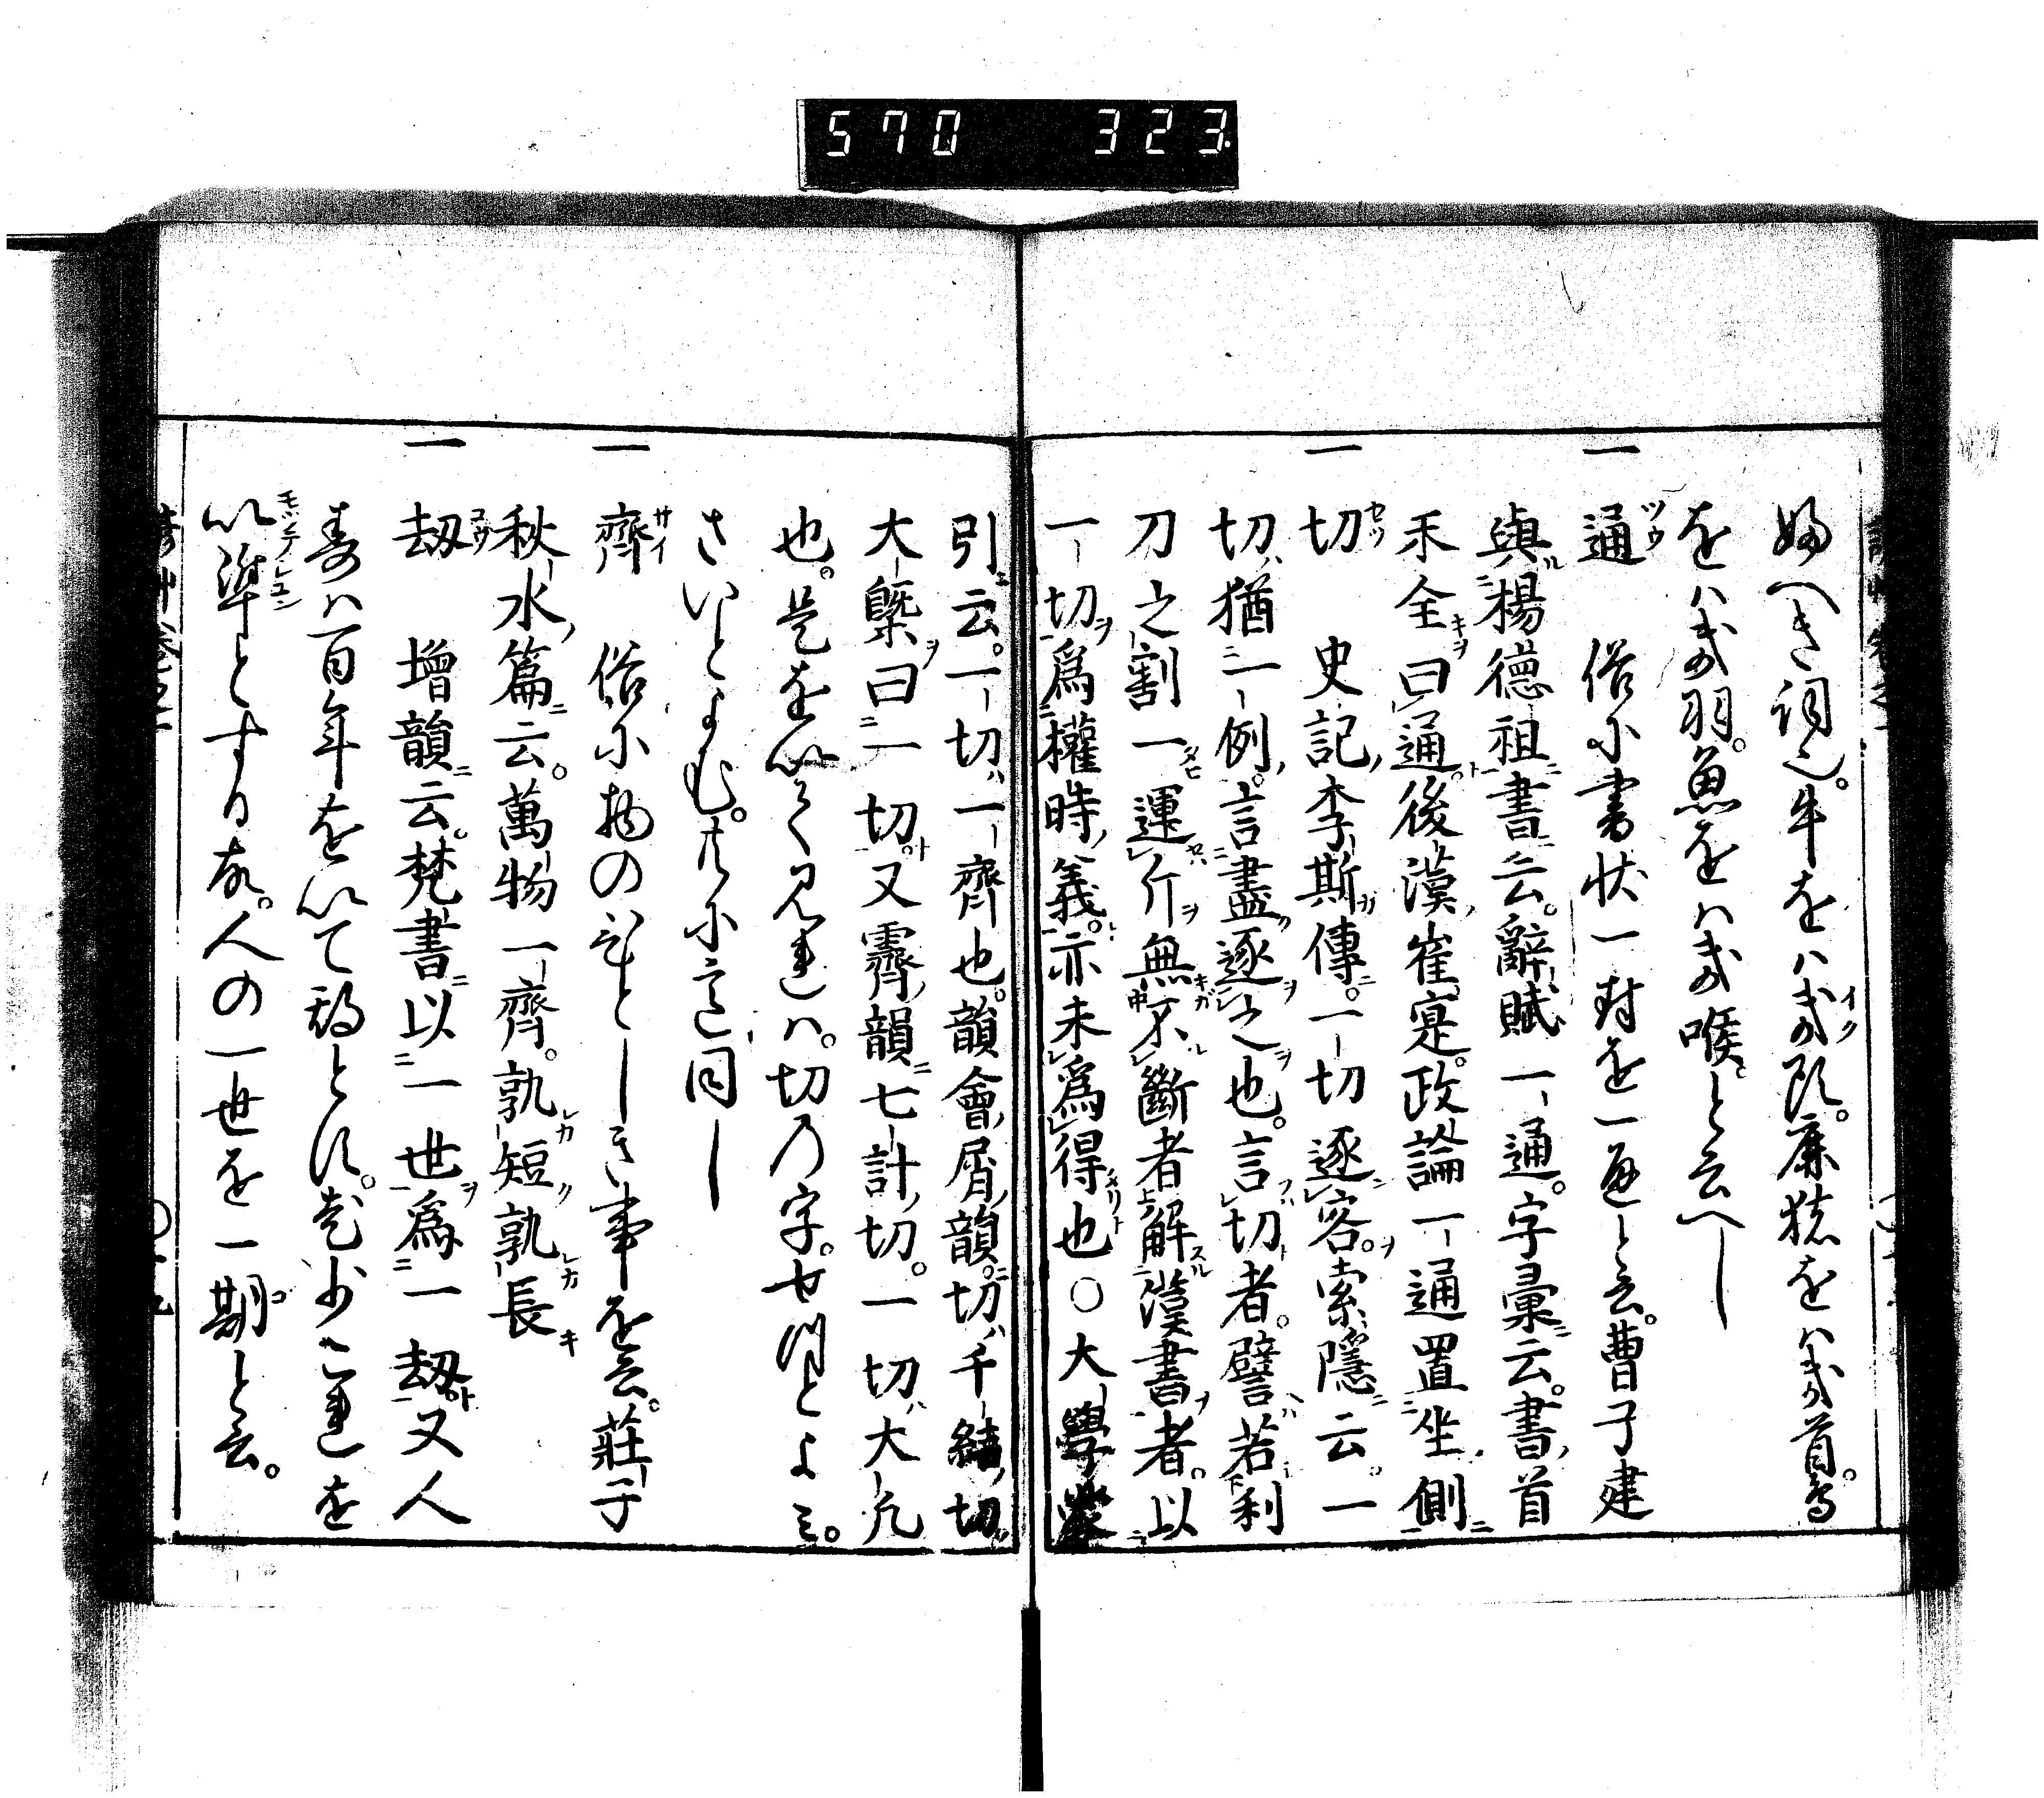 570 323.
婦へき詞也。牛をハ幾頭。鹿猿をハ幾首。鳥
をハ幾羽。魚をハ幾喉。と云へし
一通 俗に書状一封を一通と云。曹子建
與楊德祖書云。辭賦一通。字彙云。書首
末全曰通。後漢崔寔。政論一通置坐側
一切 史記李斯傳。一切逐客。索隱云。一
切猶一例。言盡逐之也。言切者。譬若利
刀之割一運斤無不斷者。解漢書者。以
一切爲權時義。亦未爲得也○大學蒙
引云。一切一齊也。韻會屑韻。切千結切
大槩曰一切又霽韻七計切。一切大凡
也。是を以て見連ハ。切乃字。せ川とよミ。
さいとよむ。共に意同し
一齊 俗に物のひとしき事を云。莊子
秋水篇云。萬物一齊。孰短孰長
一劫 增韻云。梵書以一世爲一劫又人
壽ハ百年を以て期とす。老少これを
以準とする故。人の一世を一期と云。